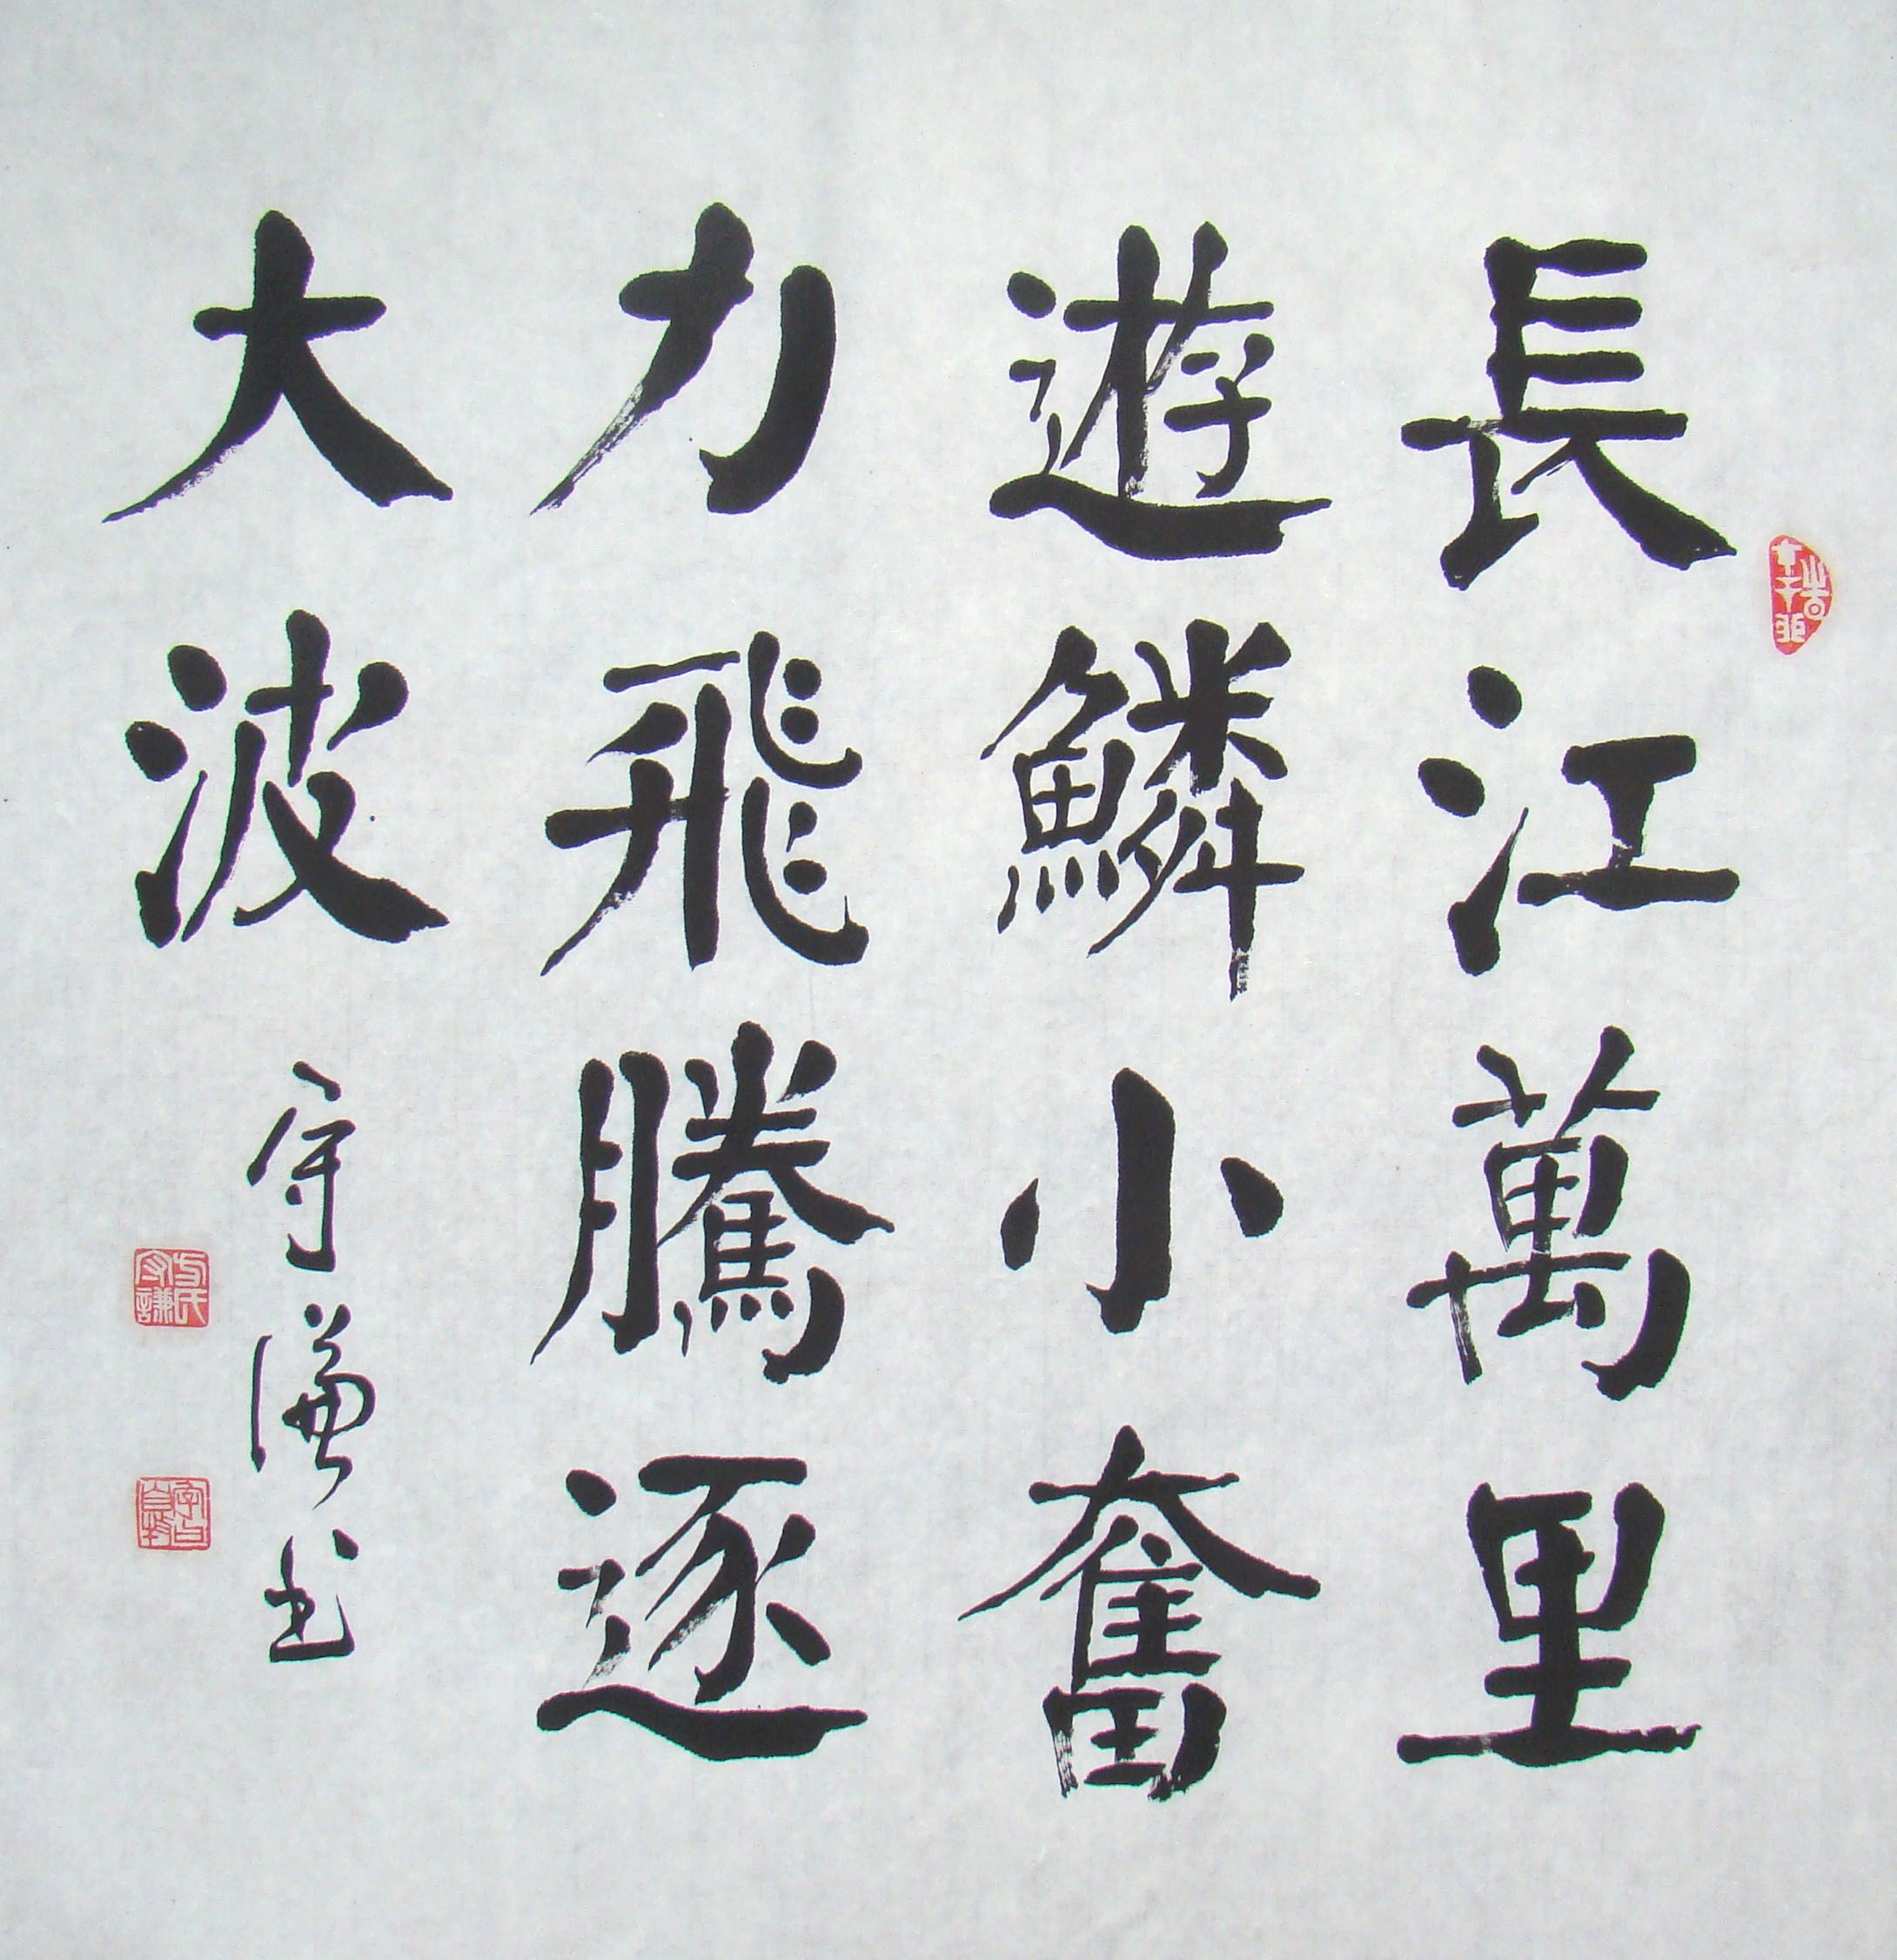 長江萬里
遊鱗小奮
力飛騰逐
大波
守謙书